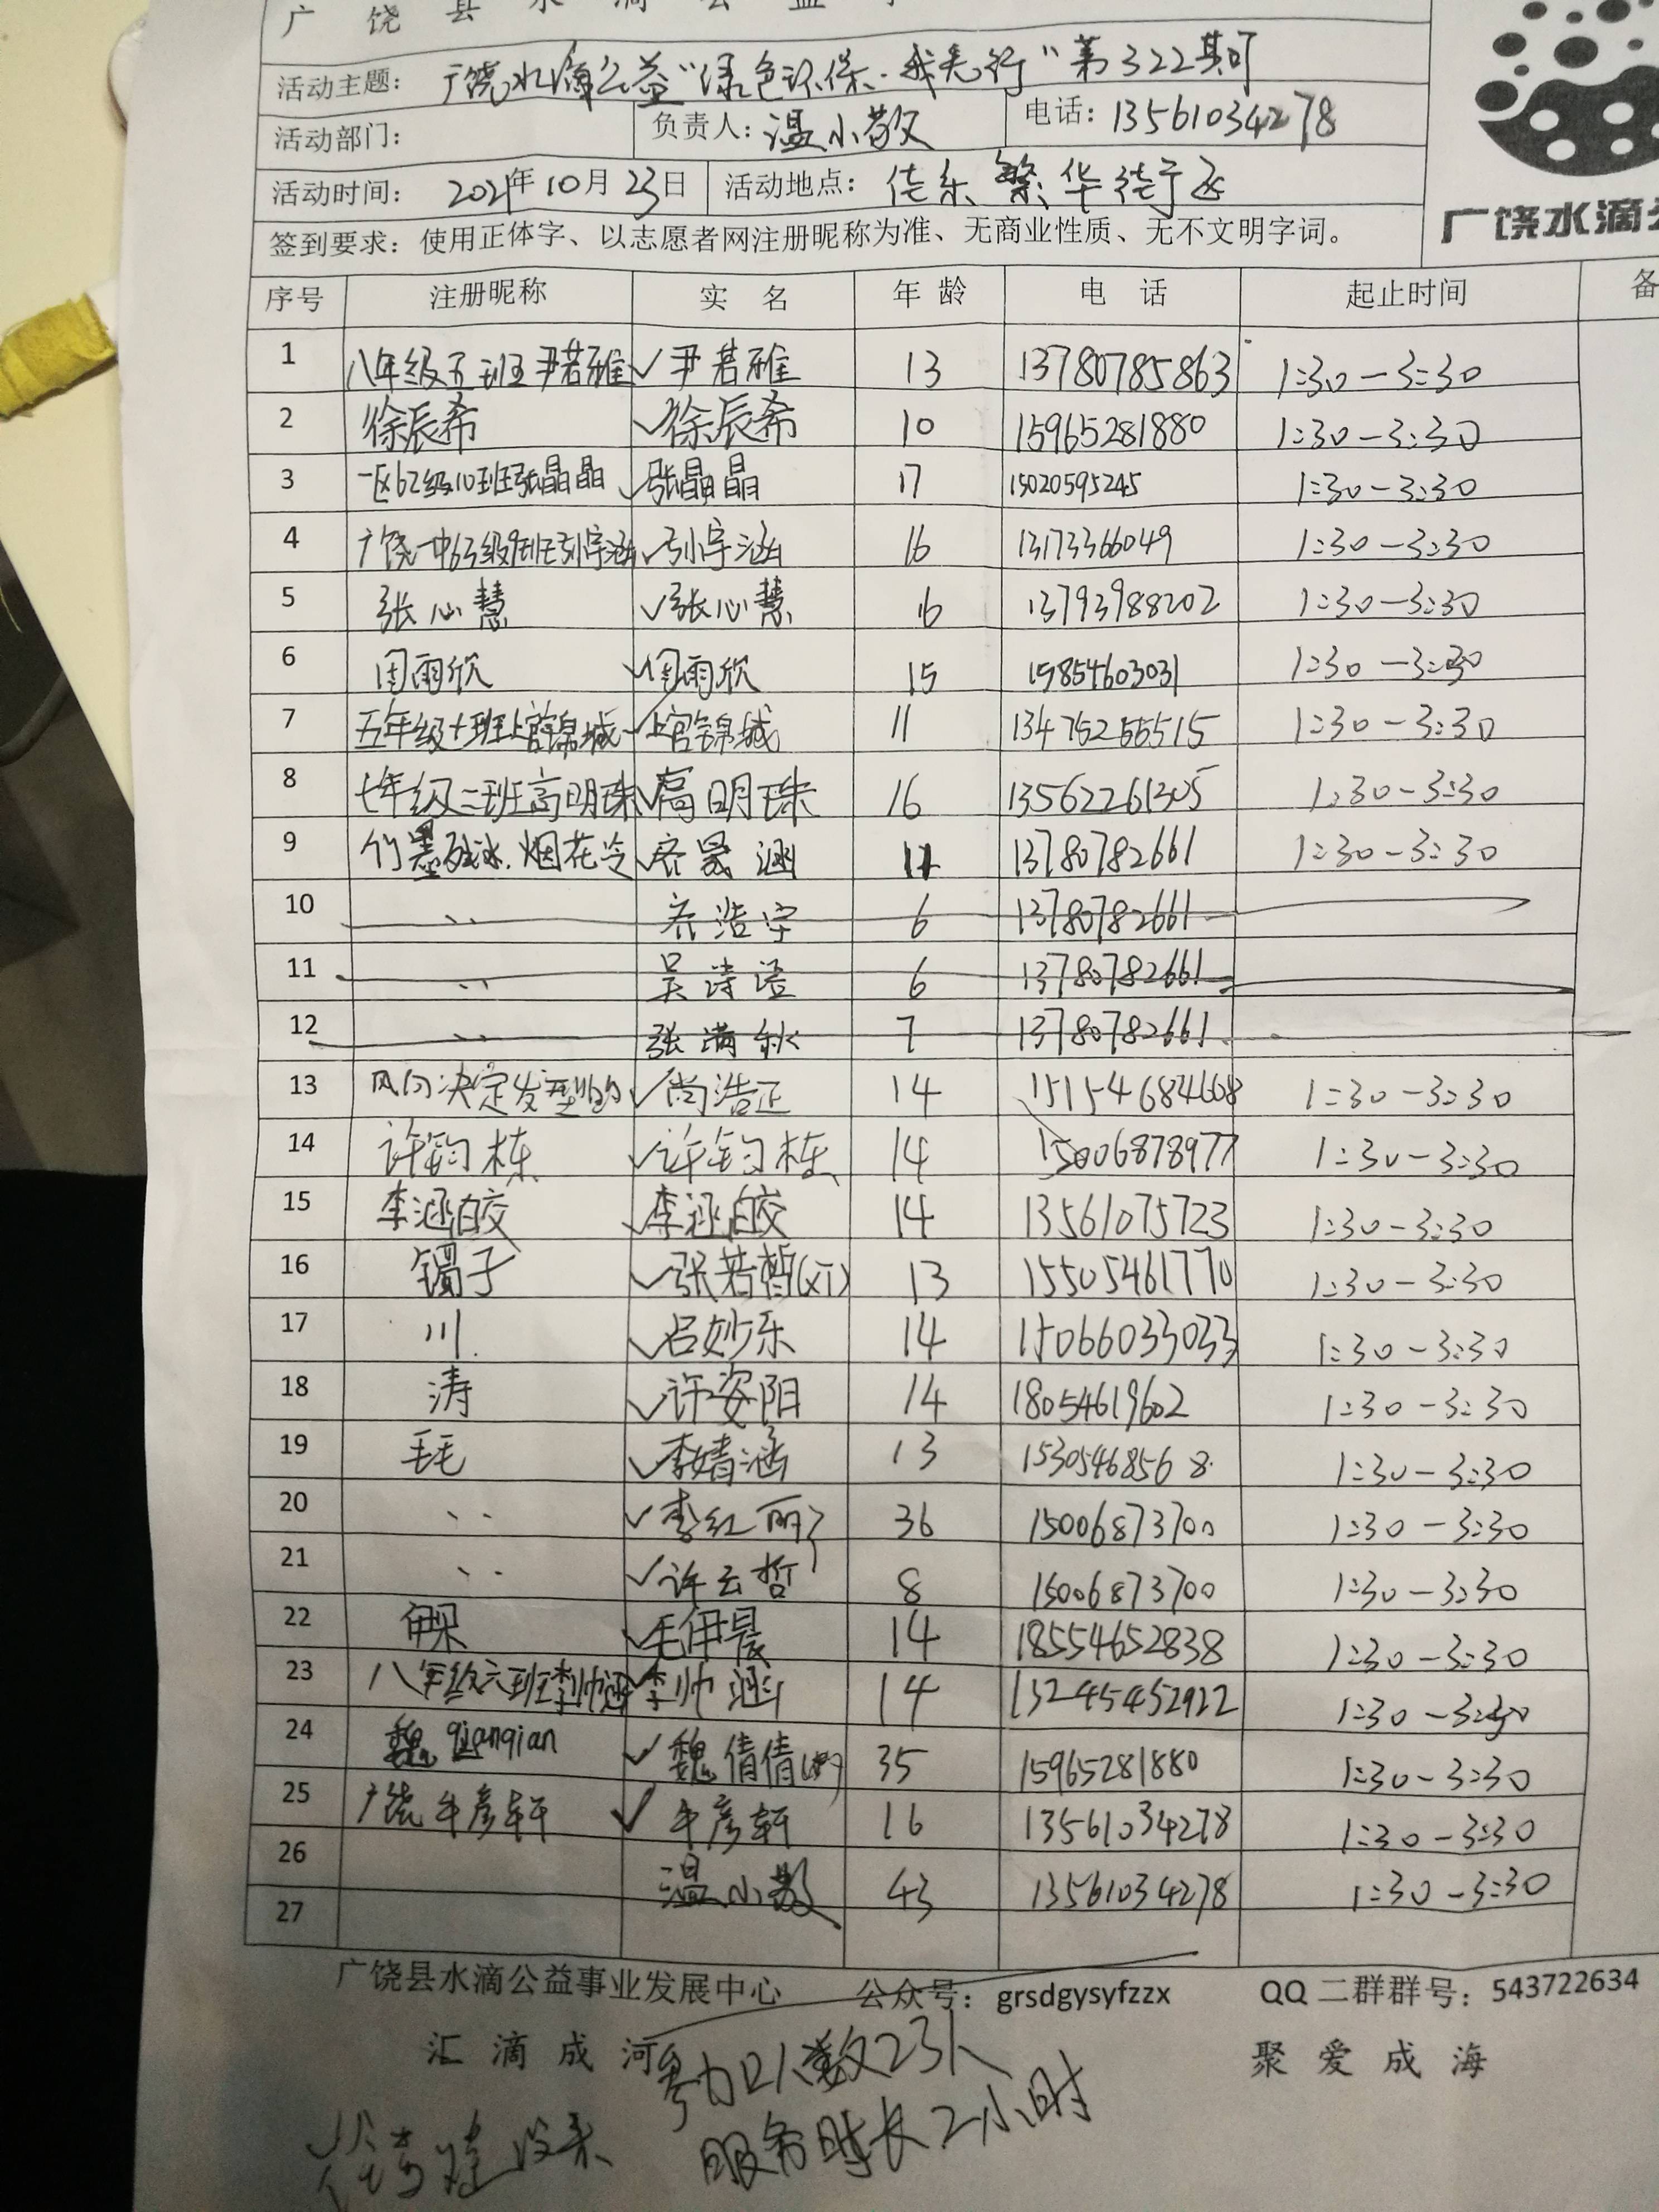 广饶县水滴公益
活动主题： 广饶水滴公益“绿色环保.我先行”第322期
活动部门： 负责人：温小敬 电话：13561034278
活动时间： 2021年10月23日 活动地点：佳乐繁华
签到要求：使用正体字、以志愿者网注册昵称为准、无商业性质、无不文明字词。
广饶水滴
序号 注册昵称 实 名 年 龄 电 话 起止时间 备
1 八年级五班尹若雅 ✓尹若雅 13 13780785863 1:30-3:30
2 徐辰希 ✓徐辰希 10 15965281880 1:30-3:30
3 一区62级10班张晶晶 ✓张晶晶 17 15020595245 1:30-3:30
4 广饶一中63级9班孙宇涵 ✓孙宇涵 16 13173366049 1:30-3:30
5 张心慧 ✓张心慧 16 13793988202 1:30-3:30
6 周雨欣 ✓周雨欣 15 15854603031 1:30-3:30
7 五年级十班上官锦城 ✓上官锦城 11 1:30-3:30
8 七年级二班高明珠 ✓高明珠 16 13562261305 1:30-3:30
9 竹墨残冰.烟花冷 ✓齐晟涵 11 13780782661 1:30-3:30
10 、、 齐浩宇 6 13780782661
11 、、 吴诗语 6 13780782661
12 、、 张满秋 7 13780782661
13 风向决定发型 ✓尚浩正 14 15154684668 1:30-3:30
14 许钧栋 ✓许钧栋 14 15006878977 1:30-3:30
15 李涵皎 ✓李涵皎 14 13561075723 1:30-3:30
16 镯子 ✓张若皙(XT) 13 15505461770 1:30-3:30
17 川. ✓吕妙乐 14 15066033033 1:30-3:30
18 涛 ✓许姿阳 14 18054619602 1:30-3:30
19 毛 ✓李婧涵 13 15305468568 1:30-3:30
20 、、 ✓李红丽 36 15006873700 1:30-3:30
21 、、 ✓许云哲 8 15006873700 1:30-3:30
22 ✓毛伊晨 14 18554652838 1:30-3:30
23 八年级六班李帅涵 ✓李帅涵 14 13245452922 1:30-3:30
24 魏qianqian ✓魏倩倩 35 15965281880 1:30-3:30
25 广饶牛彦轩 ✓牛彦轩 16 13561034278 1:30-3:30
26 温小敬 43 13561034278 1:30-3:30
27
广饶县水滴公益事业发展中心 公众号：grsdgysyfzzx QQ二群群号：543722634
汇 滴 成 河 聚 爱 成 海
参加人数23人
服务时长2小时
没来